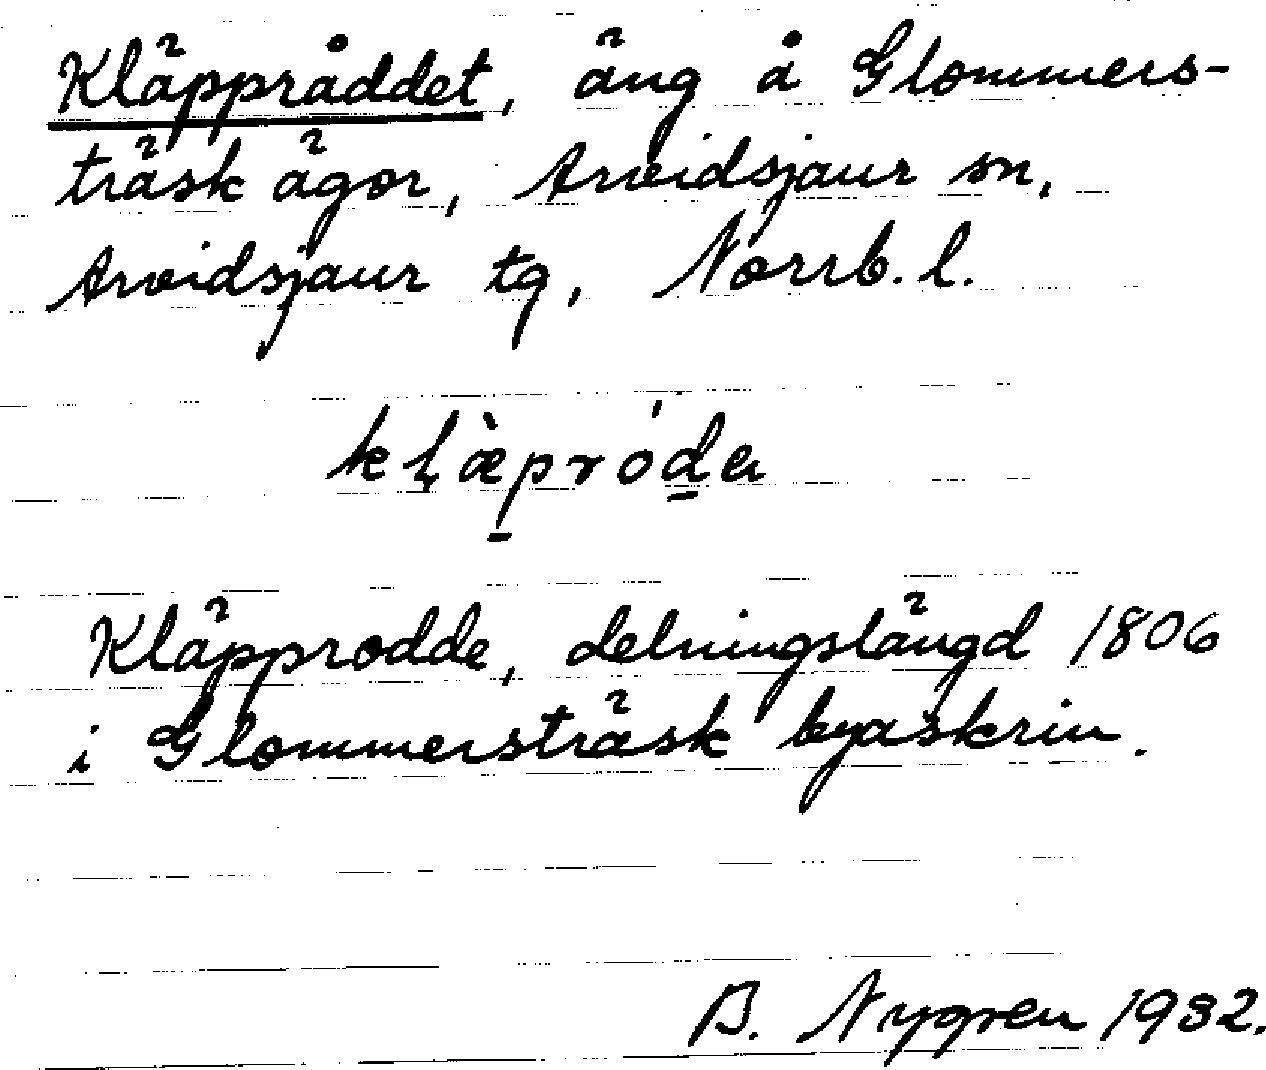 Kläppråddet, äng å Glommers-
träsk ägor, Arvidsjaur sn,
Arvidsjaur tg, Norrb. l.
kḷæ̀p̱róḏa
Kläpprodde, delningslängd 1806
i Glommersträsk byaskrin.
B. Nygren 1932.